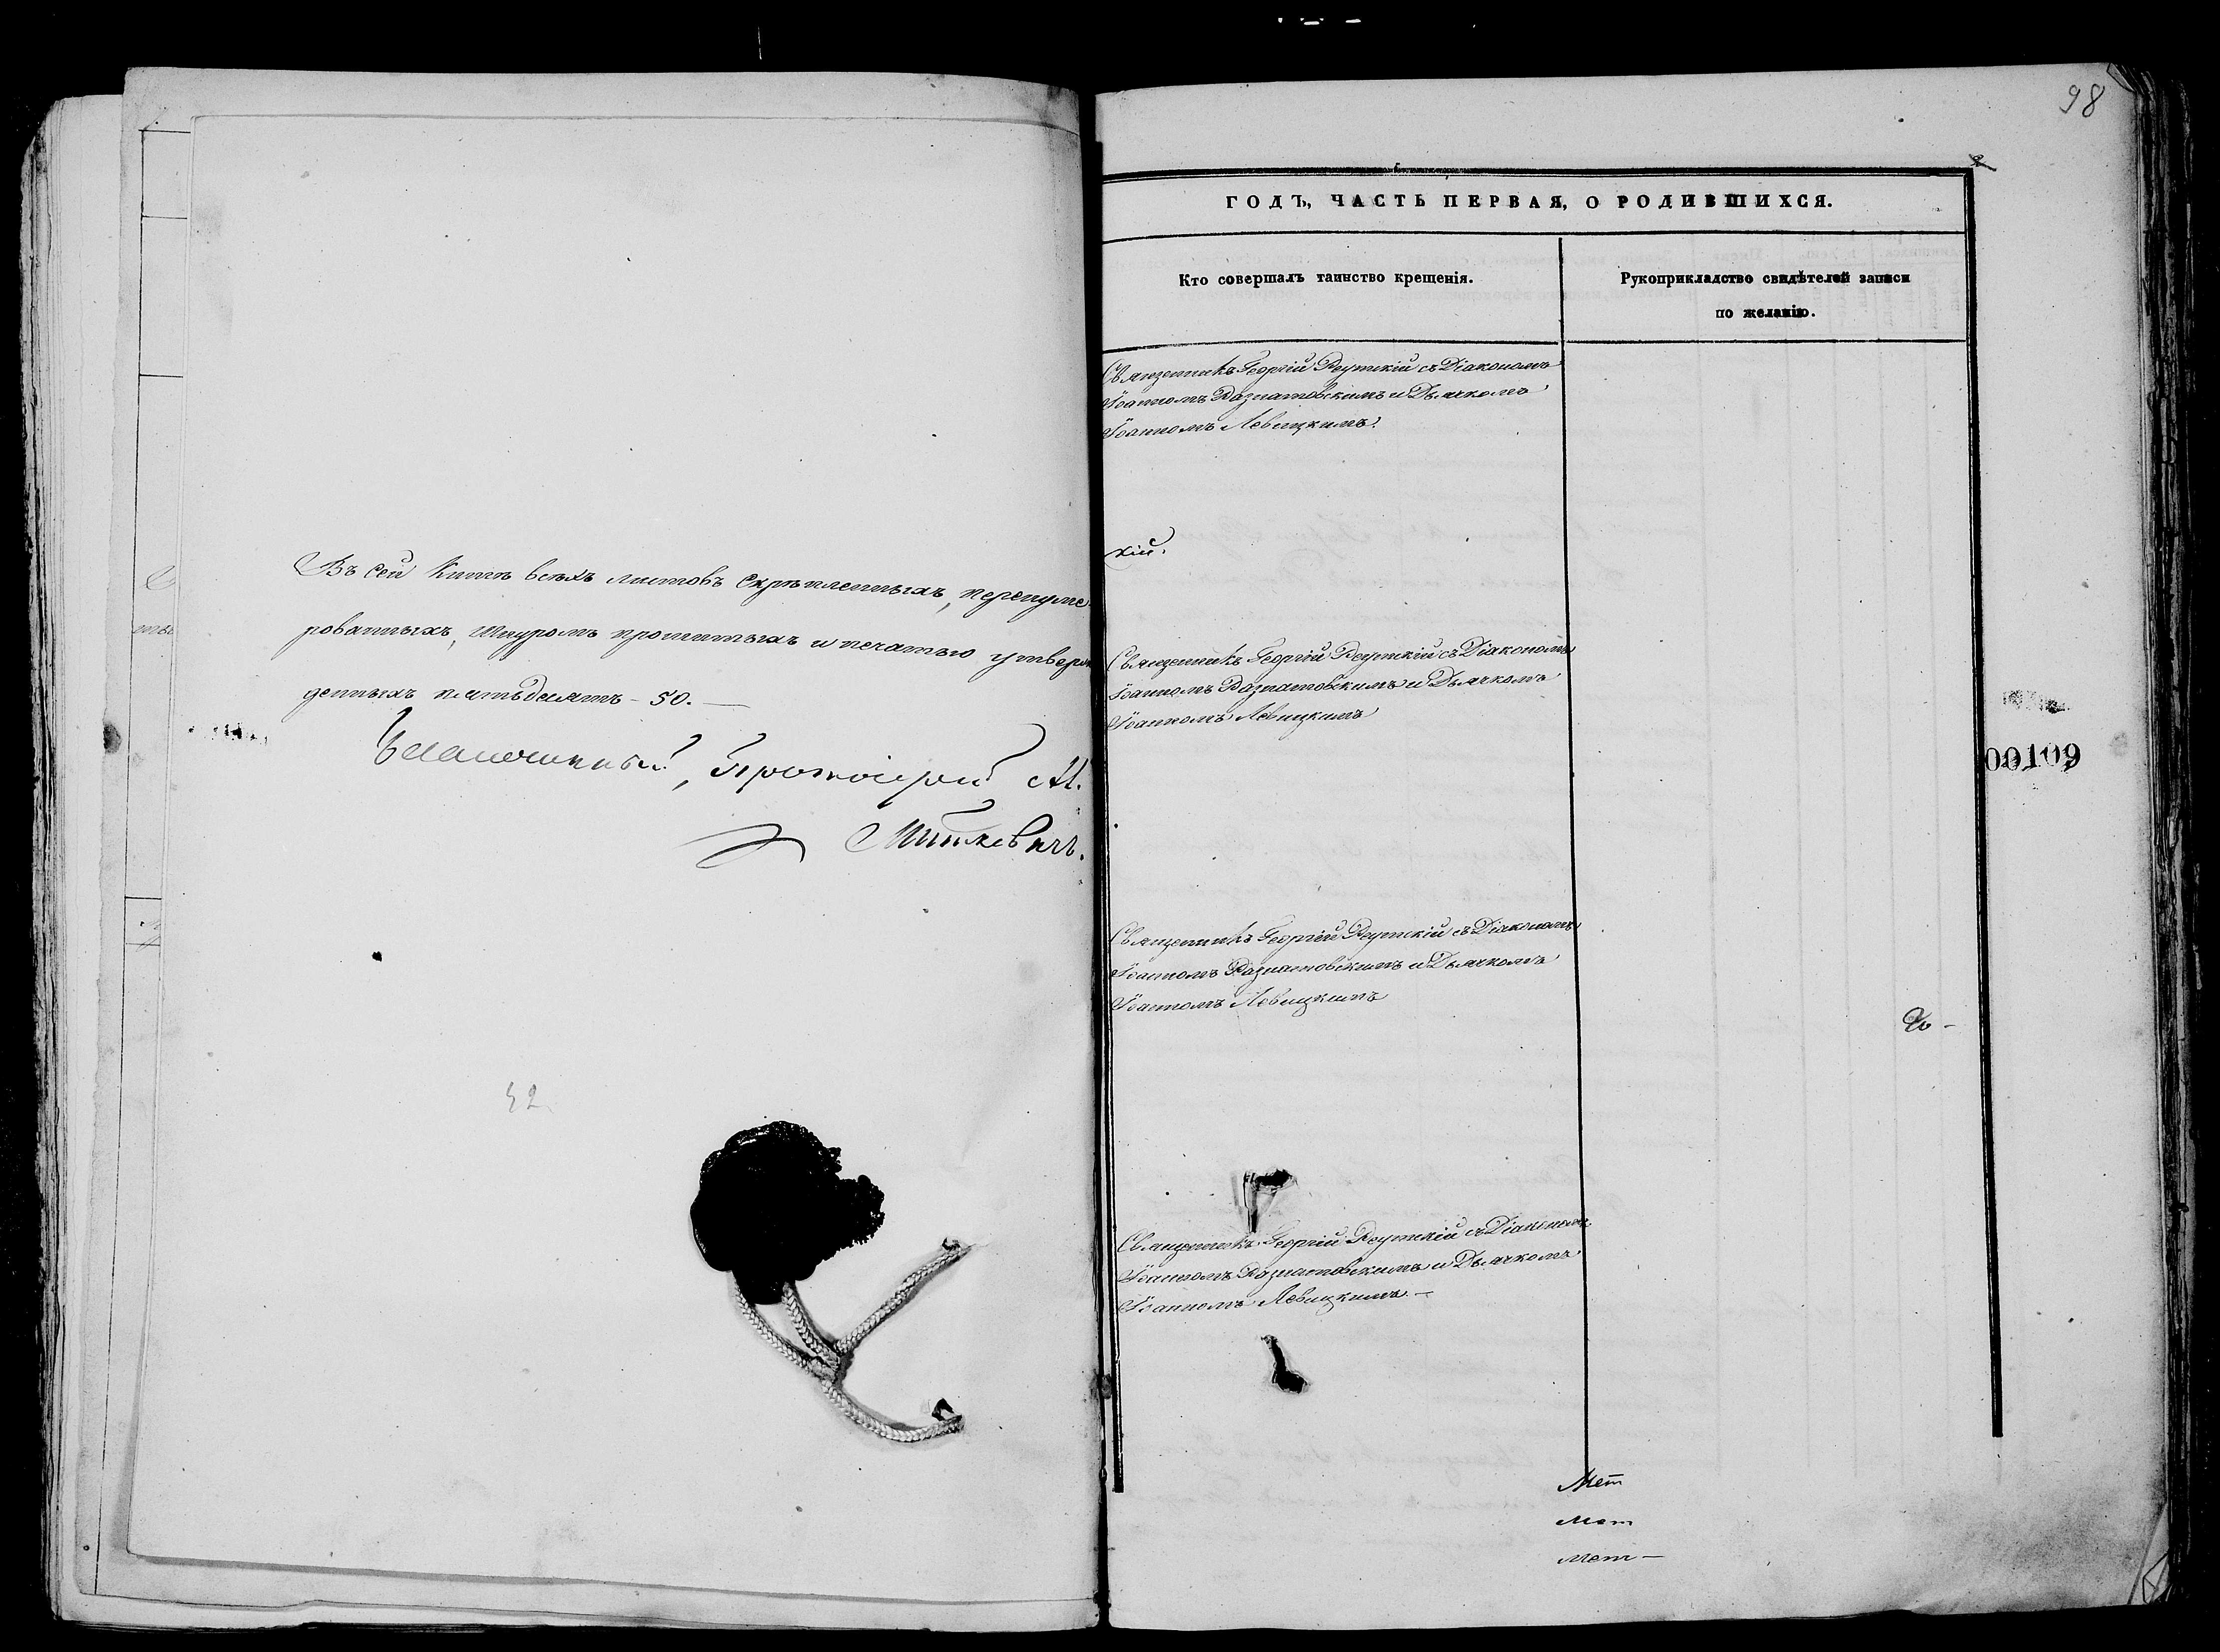 Въ сей Книгѣ всѣхъ листовъ скрѣпленныхъ, перенуме-
рованныхъ, шнуромъ прошитыхъ и печатью утверж
денныхъ пятьдесятъ - 50. —
Благочинный, Протоіерей М.
Миткевичъ.
42
98
2
ГОДЪ, ЧАСТЬ ПЕРВАЯ, О РОДИВШИХСЯ.
Кто совершалъ таинство крещенія.
Рукоприкладство свидѣтелей записи
по желанію.
Священникъ Георгій Реутскій съ Діакономъ
Іоанномъ Разнатовскимъ и Дьячкомъ
Іоанномъ Левицкимъ.
кій.
Священникъ Георгій Реутскій съ Діакономъ
Іоанномъ Разнатовскимъ и Дьячкомъ
Іоанномъ Левицкимъ
00109
Священникъ Георгій Реутскій съ Діакономъ
Іоанномъ Разнатовскимъ и Дьячкомъ
Іоанномъ Левицкимъ
Священникъ Георгій Реутскій съ Діакономъ
Іоанномъ Разнатовскимъ и Дьячкомъ
Іоанномъ Левицкимъ. —
Мет
Мет
Мет —